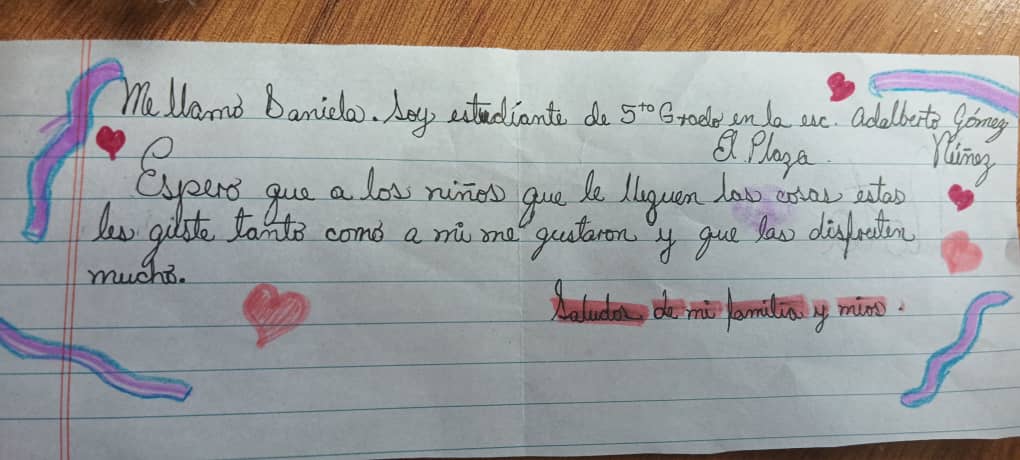 Me llamo Daniela. Soy estudiante de 5to Grado en la esc. Adalberto Gómez
El Plaza. Núñez
Espero que a los niños que le lleguen las cosas estas
les guste tanto como a mi me gustaron y que las disfruten
mucho.
Saludos de mi familia y mios.